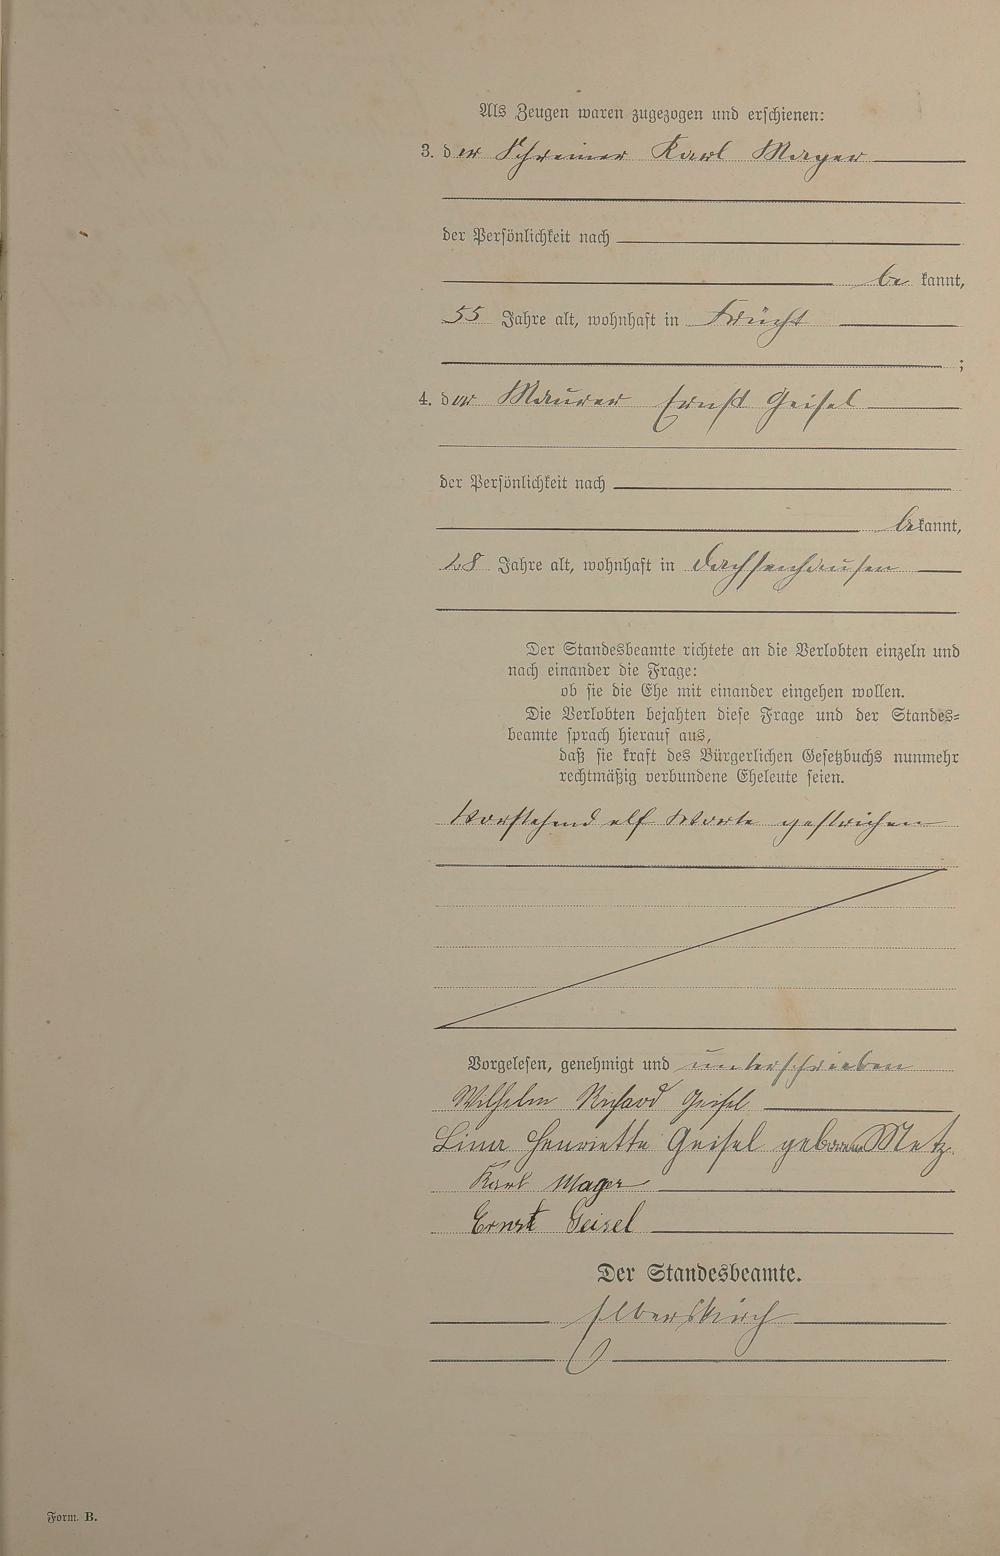 Als Zeugen waren zugezogen und erschienen:
3. der Schreiner Karl Mager
der Persönlichkeit nach
be kannt,
55 Jahre alt, wohnhaft in Frücht
;
4. der Maurer Ernst Geisel
der Persönlichkeit nach
bekannt,
28 Jahre alt, wohnhaft in Dachsenhausen
Der Standesbeamte richtete an die Verlobten einzeln und
nach einander die Frage:
ob sie die Ehe mit einander eingehen wollen.
Die Verlobten bejahten diese Frage und der Standes=
beamte sprach hierauf aus,
daß sie kraft des Bürgerlichen Gesetzbuchs nunmehr
rechtmäßig verbundene Eheleute seien.
Vorstehend elf Worte gestrichen
Vorgelesen, genehmigt und unterschrieben
Wilhelm Richard Geisel
Lina Henriette Geisel geborene Metz
Karl Mager
Ernst Geisel
Der Standesbeamte.
Elberskirch
Form. B.